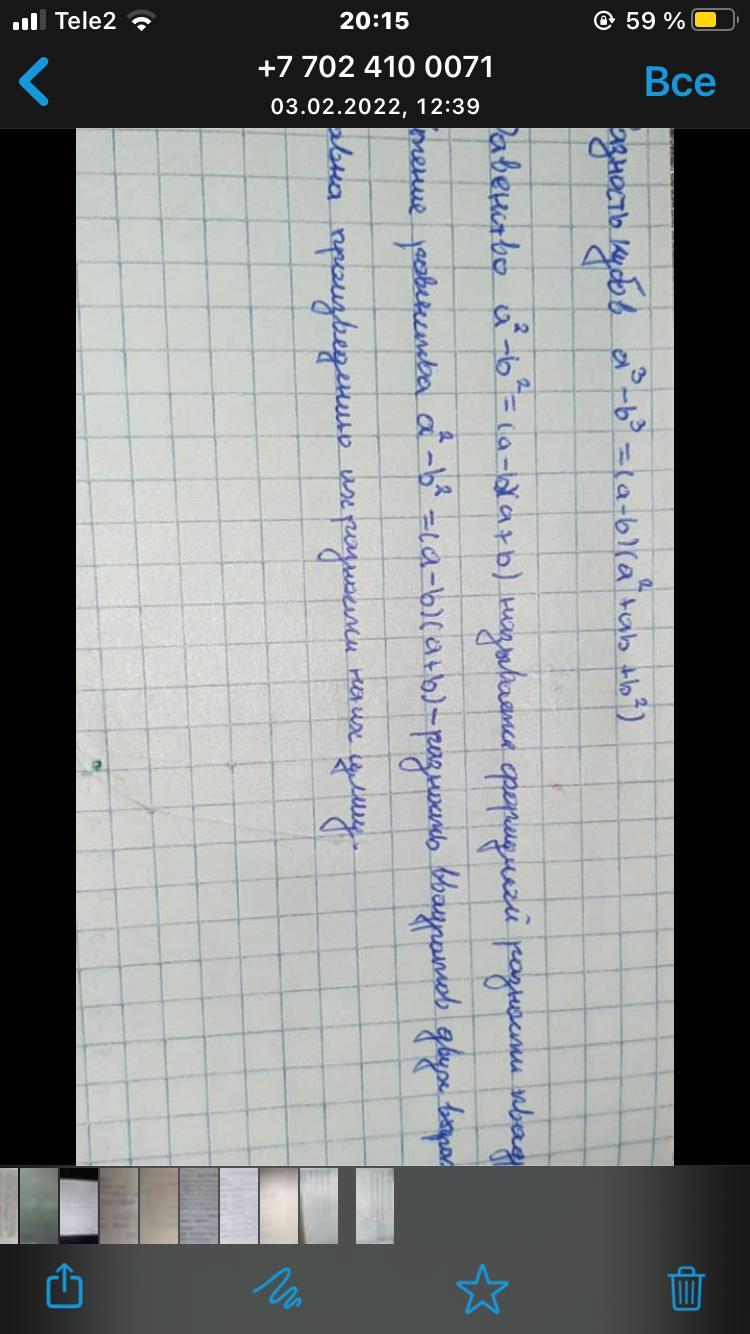 Tele2
20:15
59 %
+7 702 410 0071
03.02.2022, 12:39
Все
азность кубов a³-b³=(a-b)(a²+ab+b²)
Равенство a²-b²=(a-b)(a+b) называется формулой разности квад
тение равенства a²-b²=(a-b)(a+b)-разность квадратов двух выра
авна произведению их разности на их сумму.